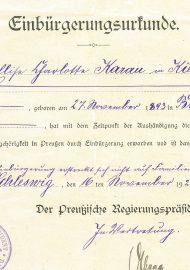 Einbürgerungsurkunde.
Charlotte Karau in Kiel
, geboren am 27. November 1893 in
, hat mit dem Zeitpunkt der Aushändigung die
gehörigkeit in Preußen durch Einbürgerung erworben und ist dam
inbürgerung erstreckt sich nicht auf Familien
Schleswig, den 16ten November 192
Der Preußische Regierungspräsid
In Vertretung.